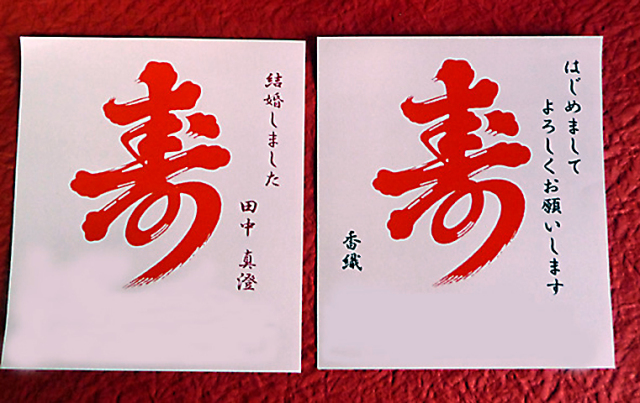 寿
結婚しました
田中 真澄
寿
はじめまして
よろしくお願いします
香織